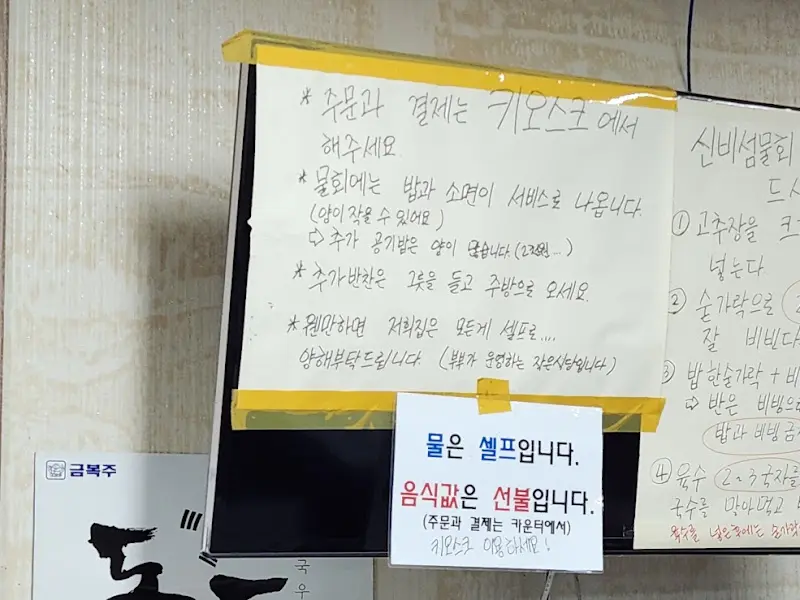 * 주문과 결제는 키오스크에서
해주세요
* 물회에는 밥과 소면이 서비스로 나옵니다.
(양이 작을 수 있어요)
⇨ 추가 공기밥은 양이 많습니다.
* 추가반찬은 그릇을 들고 주방으로 오세요.
* 웬만하면 저희집은 모든게 셀프로....
양해부탁드립니다. (부부가 운영하는 작은식당입니다)
물은 셀프입니다.
음식값은 선불입니다.
(주문과 결제는 카운터에서)
키오스크 이용하세요!
신비섬물회
드시
① 고추장을
넣는다
② 숟가락으로
잘 비빈다
③ 밥 한숟가락 + 비
⇨ 반은 비빔으로
밥과 비빔
④ 육수 2~3국자를
국수를 말아먹고
육수를 넣은후에는
금복주
국우